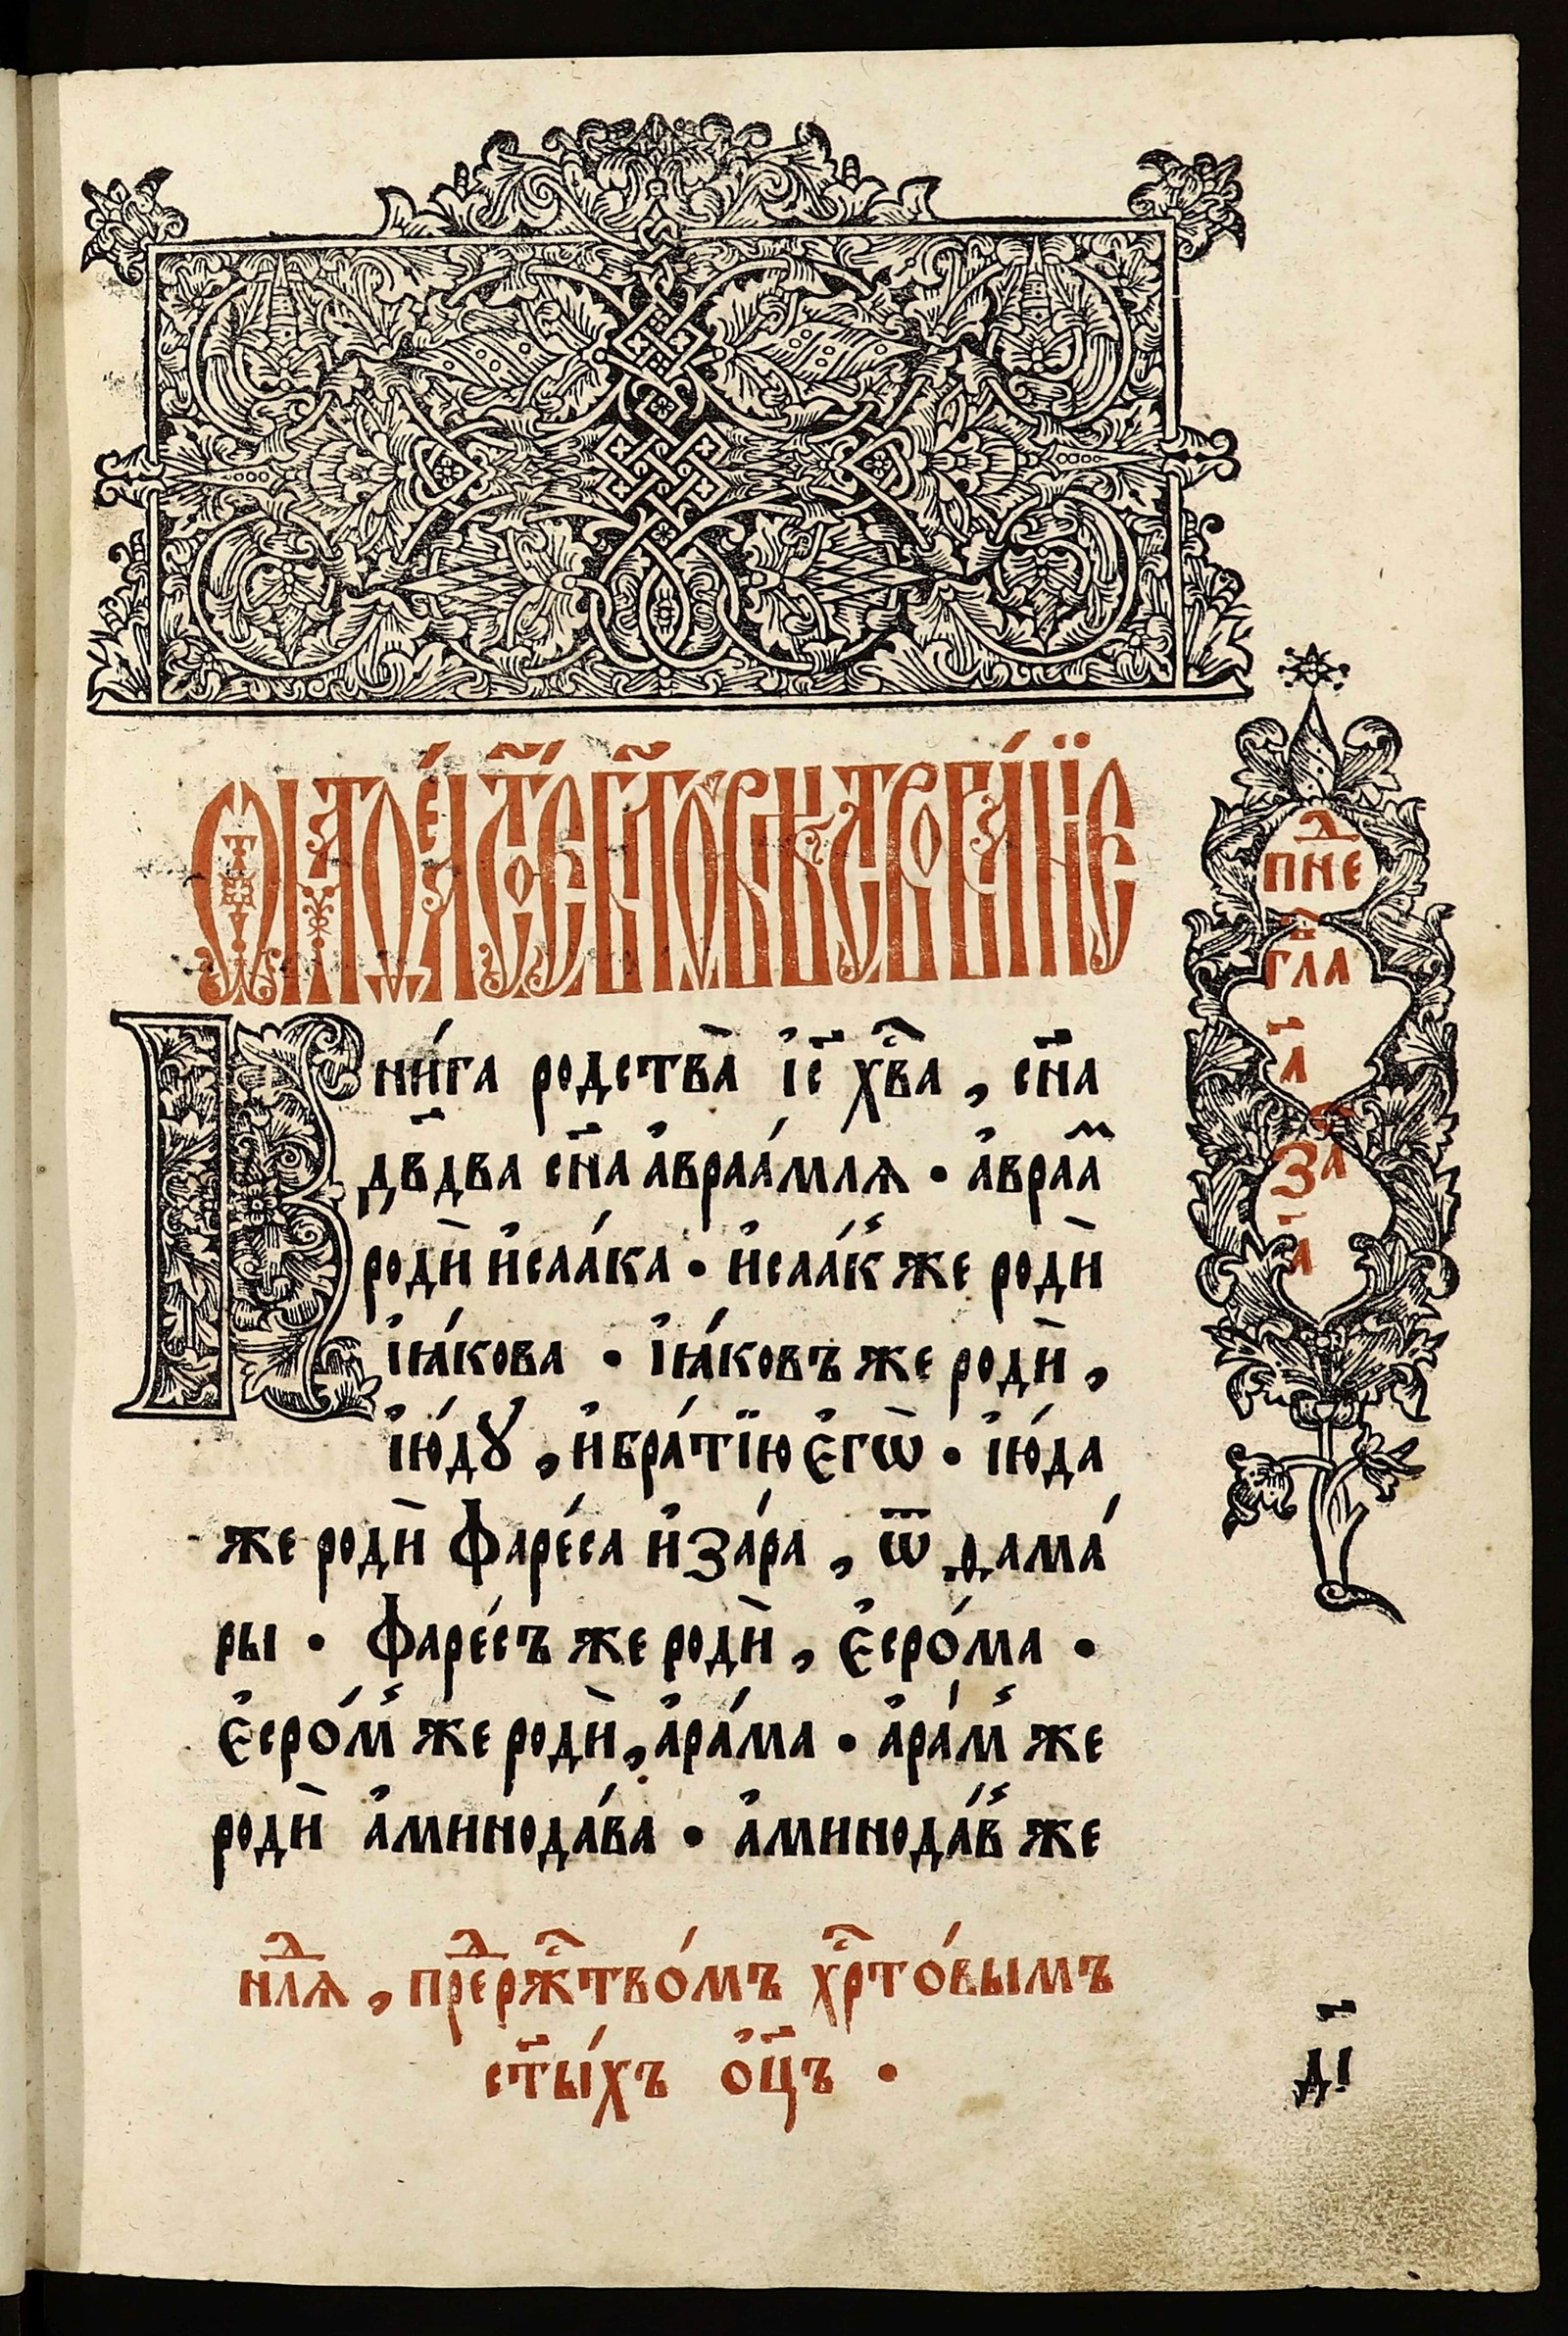 Кни́га родства̀ і҆с҃ хв҃а , сн҃а
дв҃два сн҃а а҆враа́млѧ • а҆враа̾ⷨ
родѝ и҆саа́ка • и҆саа́к̾ же родѝ
і҆ꙗ́кова • і҆ꙗ́ковъ же родѝ ,
і҆ю́дꙋ , и҆бра́тїю є҆гѡ̀ • і҆ю́да
же родѝ фаре́са и҆зара , ѿ дама́
ры • фаре́съ же родѝ , є҆сро́ма •
є҆сро́м̾ же родѝ , а҆ра́ма • а҆ра́м̾ же
родѝ а҆минода́ва • а҆минода́в̾ же
нлⷣѧ , преⷣржⷭ҇тво́мъ хрⷭ҇то́вымъ
ст҃ы́хъ ѻ҆ц҃ъ •
пнеⷣ
глаⷡ
а҃
заⷱ
а҃
д҃і